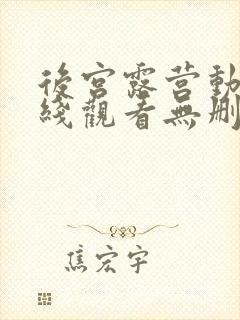 後宮露营動
綫觀看無刪
焦宏宇